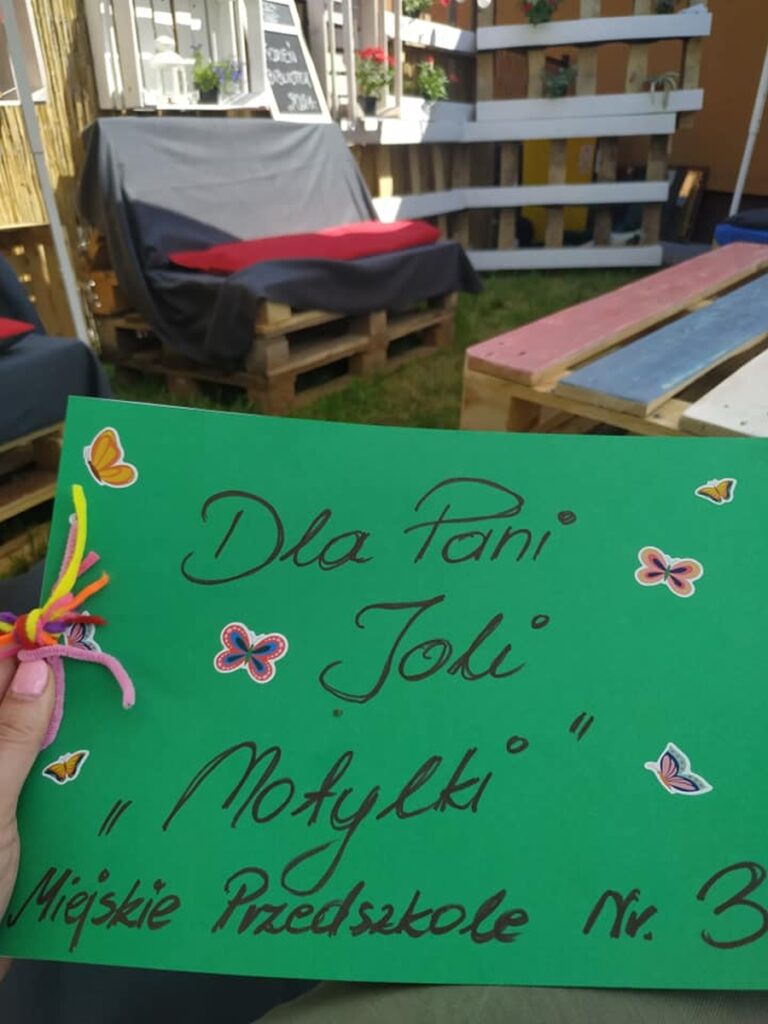 Dla Pani
Joli
"Motylki"
Miejskie Przedszkole Nr. 3